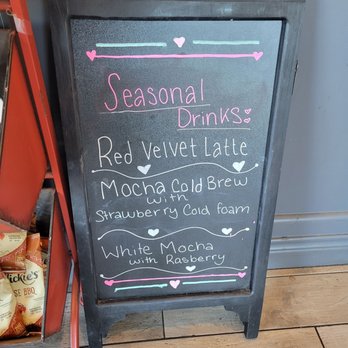 Seasonal
Drinks:
Red Velvet Latte
Mocha Cold Brew
with
Strawberry Cold foam
White Mocha
with Rasberry
BBQ